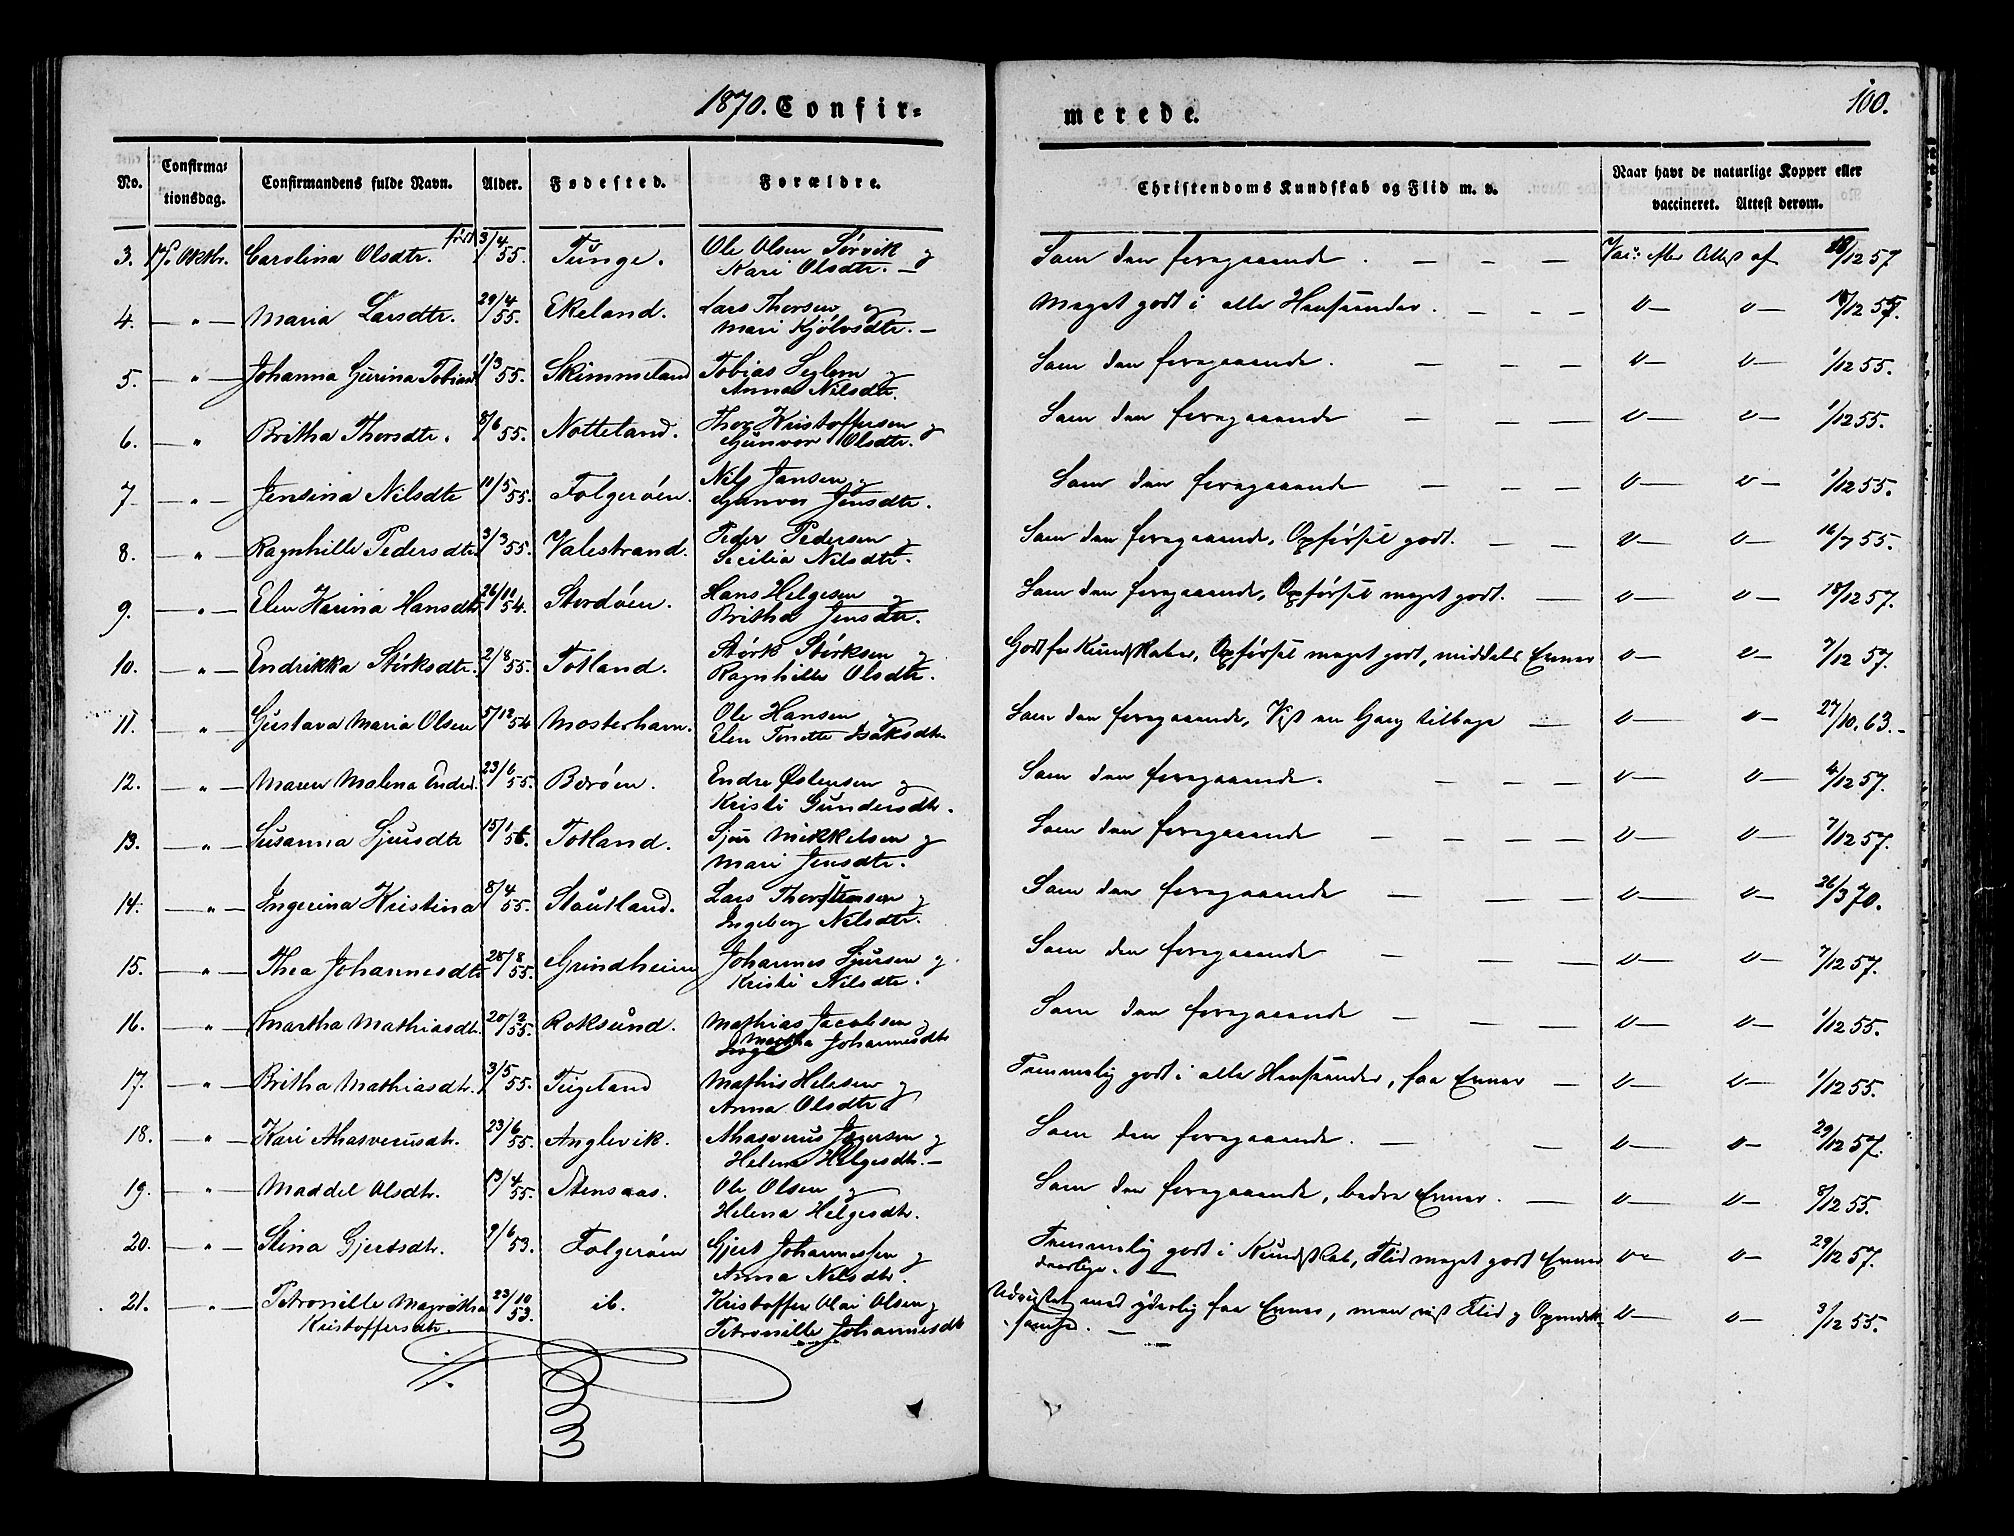 1870. Confir=
merede.
100.
No. Confirma= tionsdag. Confirmandens fulde Navn. Alder. Fødested. Forældre. Christendoms Kundskab og Flid m. v. Naar havt de naturlige Kopper eller vaccineret. Attest derom.
3. Oktbr. Carolina Olsdtr. født 3/4 55. Tunge. Ole Olsen Sørvik og Som den foregaaende. — — — Vac: efter Attest af /12 57
Kari Olsdtr. —
4. — " — Maria Larsdtr. 29/4 55. Ekeland. Lars Thorsen og Meget godt i alle Henseender. — — — " — " — /12 57.
Mari Kjølvsdtr. —
5. — " — Johanna Gurina Tobiasd 1/3 55. Skimmeland Tobias og Som den foregaaende. — — — " — " — 1/12 55.
Anna Nilsdtr.
6. — " Britha Thorsdtr. 8/6 55. Notteland. Thor Kristoffersen og Som den foregaaende — — — " — " — 1/12 55.
Gunvor Olsdtr.
7 — " — Jensina Nilsdtr 11/5 55. Folgerøen. Nils Jansen og Som den foregaaende — — — " — " — 1/12 55.
Gunvor Jensdtr.
8. — " Ragnhille Pedersdtr 3/3 55. Valestrand. Peder Pedersen og Som den foregaaende, Opførsel godt. — — " — " — 16/7 55.
Secilia Nilsdtr.
9. — " — Elen Karina Hansdtr 26/11 54. Stordøen. Hans Helgesen og Som den foregaaende, Opførsel meget godt. — " — " — 18/12 57.
Britha Jensdtr.
10. — " Endrikka Størksdtr. 2/8 55. Totland. Størk Størksen og Godt for Kundskaber, Opførsel meget godt, middels Evner " — " — 7/12 57.
Ragnhille Olsdtr.
11. — " Gustava Maria Olsen 5/12 54 Mosterhavn. Ole Hansen og Som den foregaaende, Vist en Gang tilbage — " — " — 27/10. 63. —
Elen Tonette Isaksdtr.
12. — " — Maren Malena Endred 23/6 55. Børøen. Endre Østensen og Som den foregaaende. — — — " — " — /12 57.
Kristi Gundersdtr.
13. — " — Susanna Sjursdtr 15/1 56. Totland. Sjur Mikkelsen og Som den foregaaende — — — — " — " — 7/12 57.
Mari Jensdtr.
14. — " — Ingerina Kristina 8/4 55. Stautland. Lars Thorstensen og Som den foregaaende — — — " — " — 26/3 70.
Ingeborg Nilsdtr.
15. — " Thea Johannesdtr 28/8 55. Grindheim Johannes Sjursen og Som den foregaaende — — — " — " — 7/12 57.
Kristi Nilsdtr.
16. — " Martha Mathiasdtr. 20/2 55. Roksund. Mathias Jacobsen og Som den foregaaende — — — " — " — 1/12 55.
Martha Johannesdtr
17. — " — Britha Mathiasdtr. 3/5 55. Tugeland Mathis Helesen og Temmelig godt i alle Henseender, faa Evner — " — " — 1/12 55.
Anna Olsdtr.
18. — " — Kari Ahasverusdtr. 23/6 55. Anglevik. Ahasverus Jøgersen og Som den foregaaende. — — " — " — 29/12 57.
Helena Helgesdtr. —
19. — " — Maddel Olsdtr. 13/4 55. Stensaas. Ole Olsen og Som den foregaaende, bedre Evner. — " — " — 8/12 55.
Helena Helgesdtr.
20. — " — Stina Gjertsdtr. 9/6 53. Folgerøen Gjert Johannessen og Temmelig godt i Kundskab, Flid meget godt Evner " — " — 29/12 57.
Anna Nilsdtr. daarlige. —
21. — " — Petronille Magretha 23/10 53. ib. Kristoffer Olai Olsen og Udrustet med yderlig faa Evner, men vist Flid og Opmærk- " — " — 3/12 55.
Kristoffersdtr. Petronille Johannesdtr somhed. —